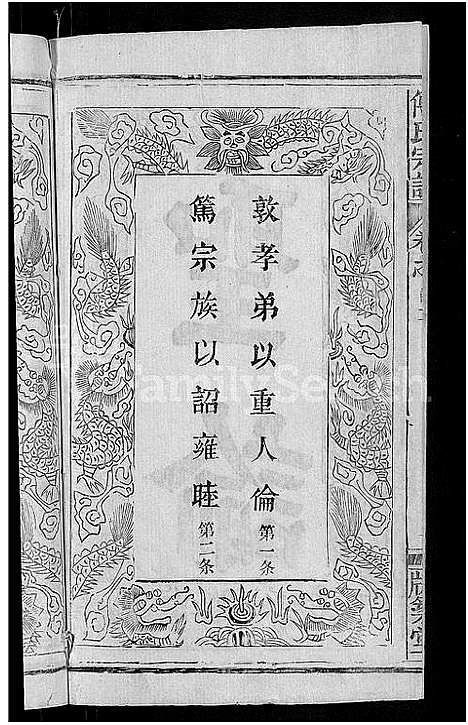 敦孝弟以重人倫 第一条
篤宗族以詔雍睦 第二条
氏宗譜
FamilySearch